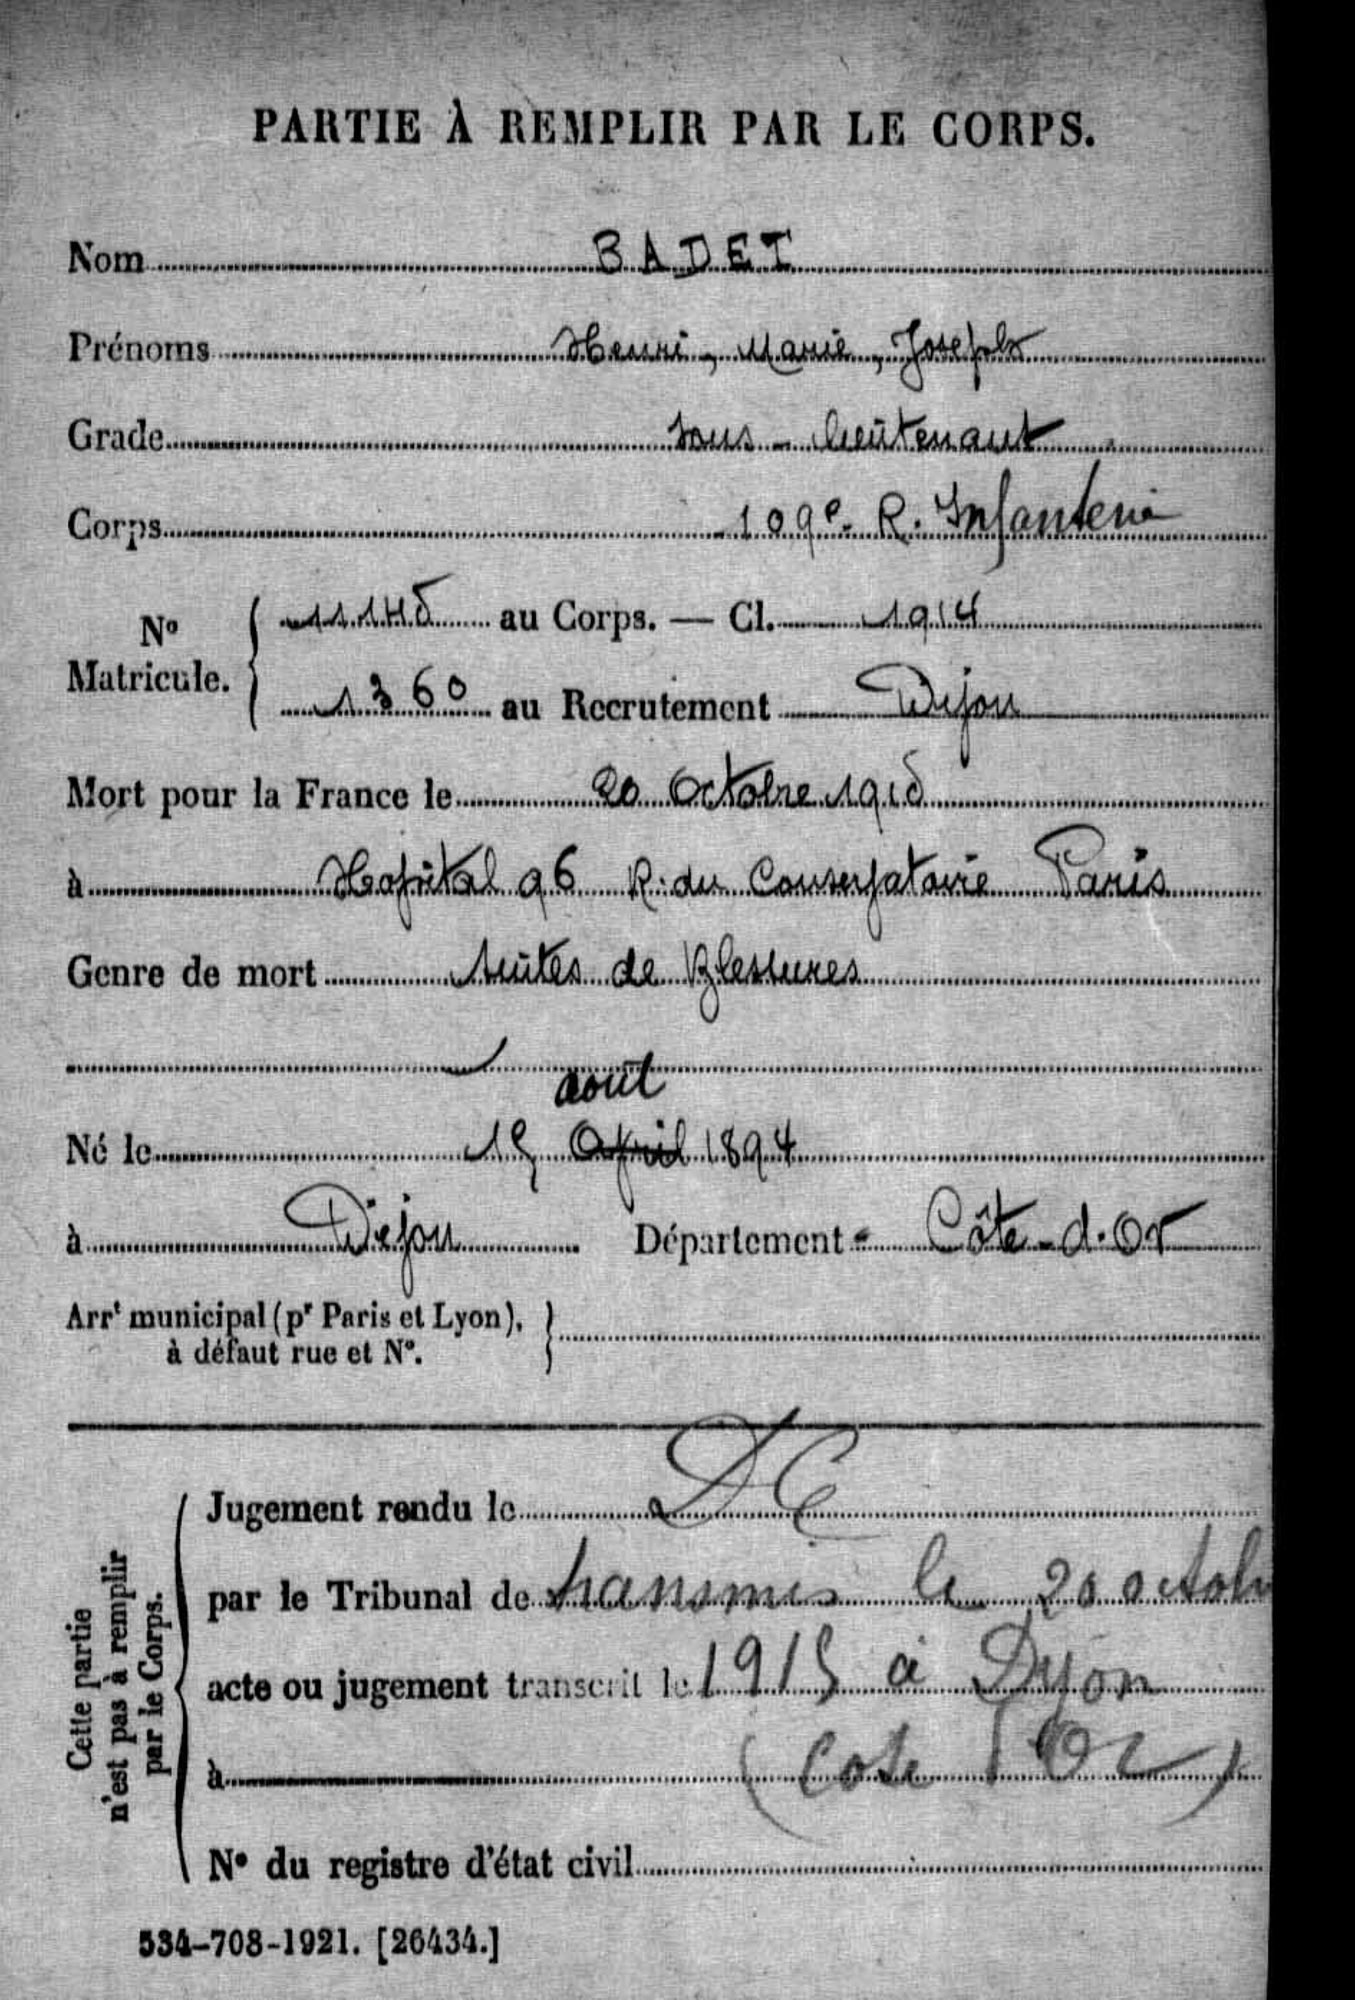 PARTIE À REMPLIR PAR LE CORPS.
Nom BADET
Prénoms Henri, Marie, Joseph
Grade Sous-lieutenant
Corps 109e R. Infanterie
N° Matricule. 11145 au Corps. — Cl. 1914
1360 au Recrutement Dijon
Mort pour la France le 20 Octobre 1915
à Hopital 96 R. du Conservatoire Paris
Genre de mort Suites de Blessures
août
Né le 15 Avril 1894
à Dijon Département Côte-d'Or
Arrt municipal (pr Paris et Lyon),
à défaut rue et N°.
Cette partie
n'est pas à remplir
par le Corps.
Jugement rendu le DC
par le Tribunal de transmis le 20 octob
acte ou jugement transcrit le 1915 à Dijon
à (Cote d'Or)
N° du registre d'état civil
534-708-1921. [26434.]